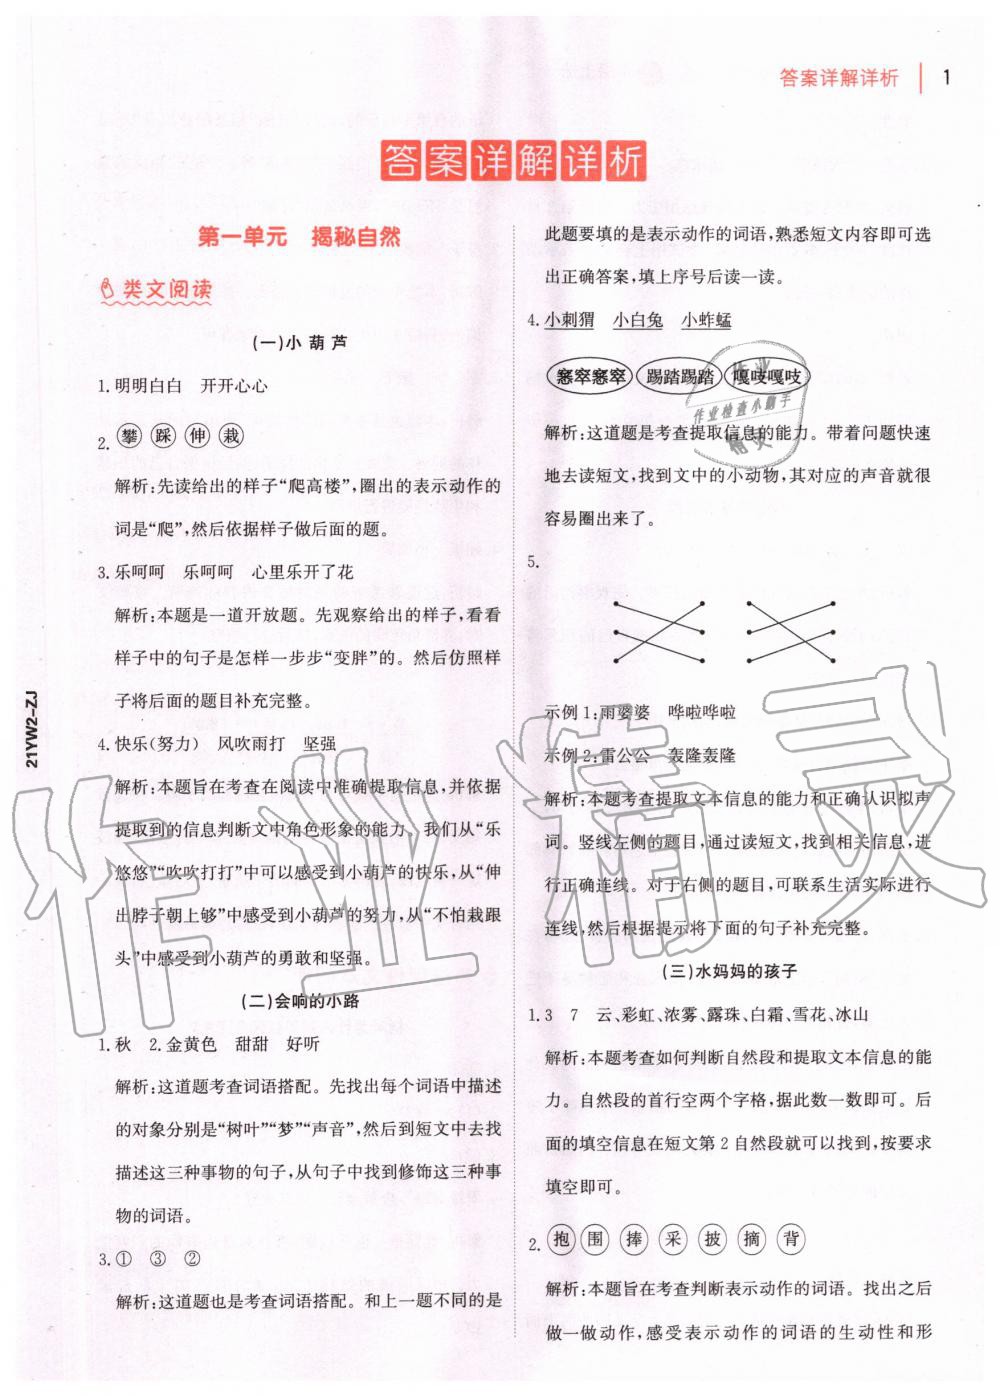 答案详解详析 1
答案详解详析
第一单元 揭秘自然
类文阅读
(一)小葫芦
1.明明白白 开开心心
2.攀 踩 伸 栽
解析:先读给出的样子“爬高楼”,圈出的表示动作的
词是“爬”,然后依据样子做后面的题。
3.乐呵呵 乐呵呵 心里乐开了花
解析:本题是一道开放题。先观察给出的样子,看看
样子中的句子是怎样一步步“变胖”的。然后仿照样
子将后面的题目补充完整。
4.快乐(努力) 风吹雨打 坚强
解析:本题旨在考查在阅读中准确提取信息,并依据
提取到的信息判断文中角色形象的能力。我们从“乐
悠悠”“吹吹打打”中可以感受到小葫芦的快乐,从“伸
出脖子朝上够”中感受到小葫芦的努力,从“不怕栽跟
头”中感受到小葫芦的勇敢和坚强。
(二)会响的小路
1.秋 2.金黄色 甜甜 好听
解析:这道题考查词语搭配。先找出每个词语中描述
的对象分别是“树叶”“梦”“声音”,然后到短文中去寻
找描述这三种事物的句子,从句子中找到修饰这三种事
物的词语。
3.① ③ ②
解析:这道题也是考查词语搭配。和上一题不同的是
此题要填的是表示动作的词语,熟悉短文内容即可选
出正确答案,填上序号后读一读。
4.小刺猬 小白兔 小蚱蜢
窸窣窸窣 踢踏踢踏 嘎吱嘎吱
解析:这道题是考查提取信息的能力。带着问题快速
地去读短文,找到文中的小动物,其对应的声音就很
容易圈出来了。
5.
示例1:雨婆婆 哗啦哗啦
示例2:雷公公 轰隆轰隆
解析:本题考查提取文本信息的能力和正确认识拟声
词。竖线左侧的题目,通过读短文,找到相关信息,进
行正确连线。对于右侧的题目,可联系生活实际进行
连线,然后根据提示将下面的句子补充完整。
(三)水妈妈的孩子
1.3 7 云、彩虹、浓雾、露珠、白霜、雪花、冰山
解析:本题考查如何判断自然段和提取文本信息的能
力。自然段的首行空两个字格,据此数一数即可。后
面的填空信息在短文第2自然段就可以找到,按要求
填空即可。
2.抱 围 捧 采 披 摘 背
解析:本题旨在考查判断表示动作的词语。找出之后
做一做动作,感受表示动作的词语的生动性和形
21YW2-ZJ
作业精灵
作业
作业检查小助手
精灵